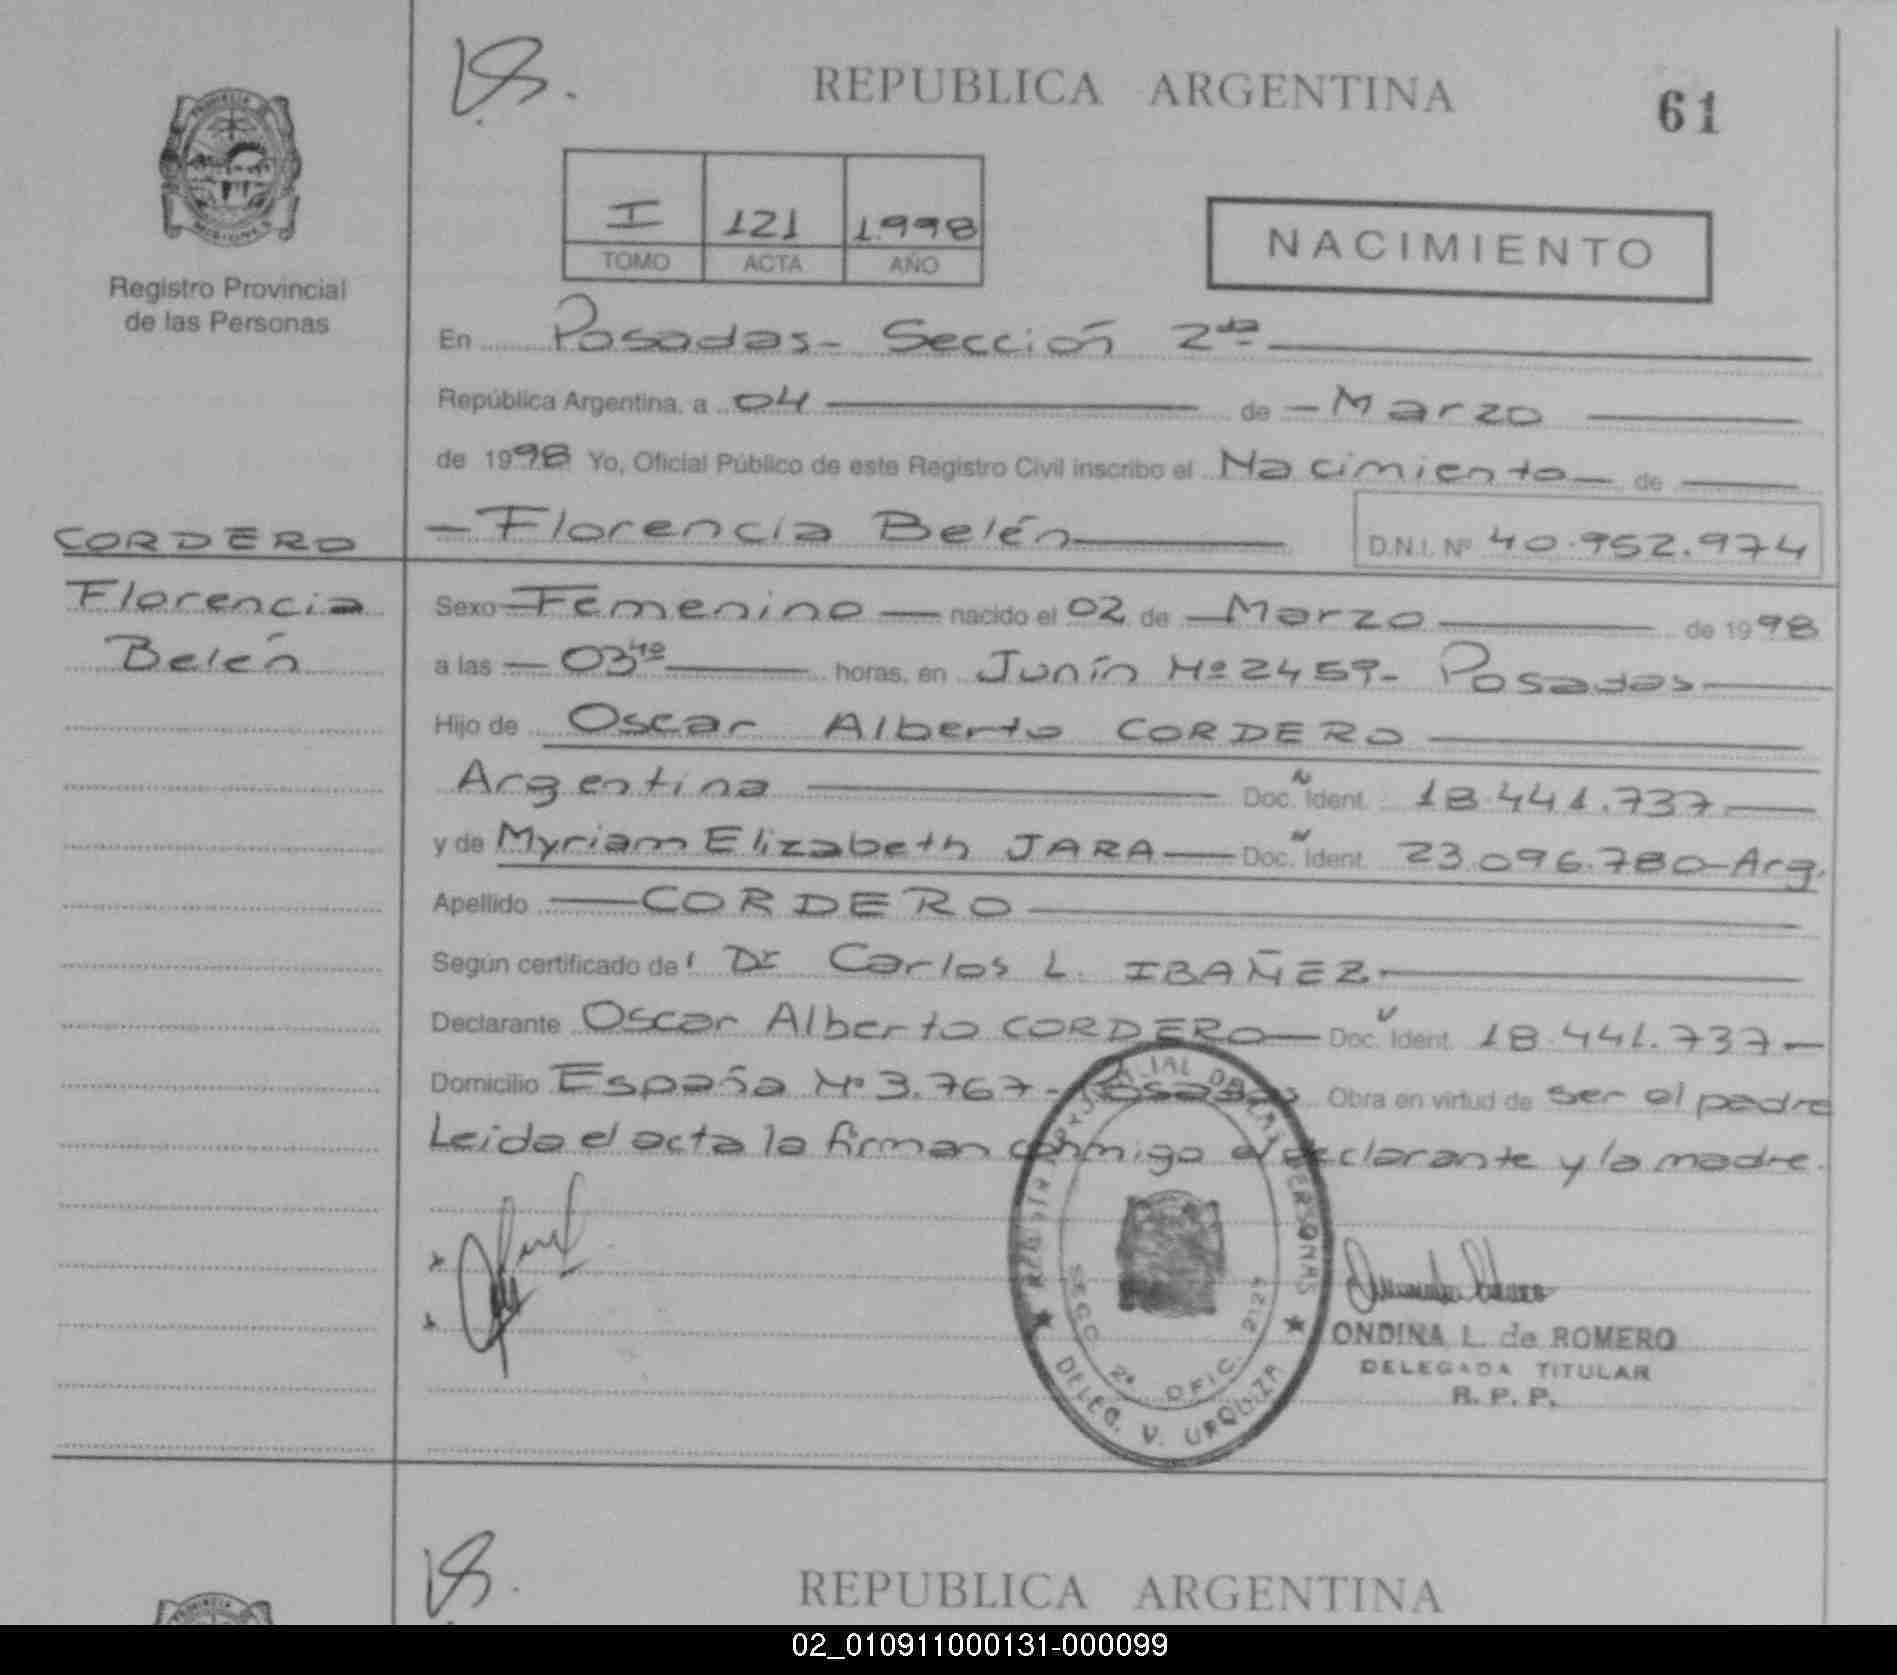 REPUBLICA ARGENTINA
61
PROVINCIA DE
MISIONES
Registro Provincial
de las Personas
I 121 1998
TOMO ACTA AÑO
NACIMIENTO
En Posadas - Sección 2da
República Argentina, a 04 de Marzo
de 1998 Yo, Oficial Público de este Registro Civil inscribo el Nacimiento de
Florencia Belén D.N.I. Nº 40.952.974
CORDERO
Florencia
Belén
Sexo Femenino nacido el 02 de Marzo de 1998
a las 03 40 horas, en Junín Nº 2459 - Posadas
Hijo de Oscar Alberto CORDERO
Argentina Doc. Ident. 18.441.737
y de Myriam Elizabeth JARA Doc. Ident. 23.096.780 - Arg.
Apellido CORDERO
Según certificado del Dr Carlos L. IBAÑEZ
Declarante Oscar Alberto CORDERO Doc. Ident. 18.441.737
Domicilio España Nº 3.767 - Posadas Obra en virtud de ser el padre
Leida el acta la firman conmigo el declarante y la madre.
SECC. 2ª OFIC. 2127
DELEG. V. URQUIZA
ONDINA L. de ROMERO
DELEGADA TITULAR
R. P. P.
REPUBLICA ARGENTINA
02_010911000131-000099